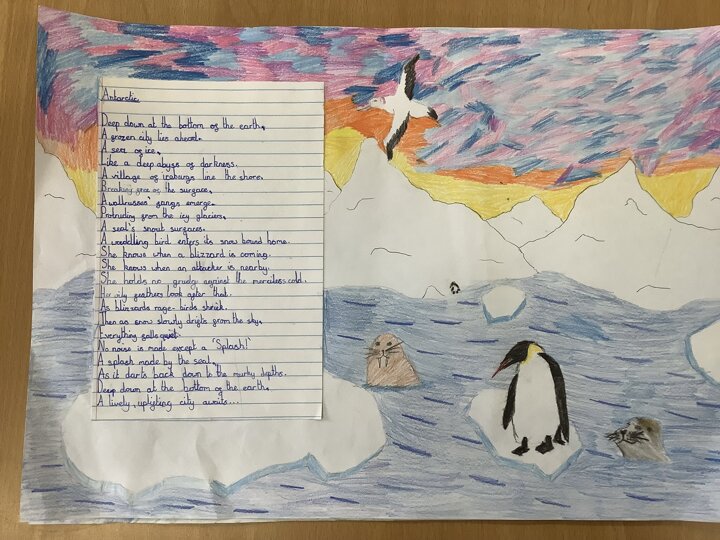 Antarctic
Deep down at the bottom of the earth,
A frozen city lies ahead.
A sea of ice,
Like a deep abyss of darkness.
A village of iceburgs line the shore.
Breaking free of the surface,
A wallrusses' fangs emerge.
Protruding from the icy glaciers,
A seal's snout surfaces.
A waddling bird enters its snow bound home.
She knows when a blizzard is coming.
She knows when an attacker is nearby.
She holds no grudge against the merciless cold.
Her oily feathers look after that.
As blizzards rage- birds shriek.
Then as snow slowly drifts from the sky,
Everything falls quiet.
No noise is made except a 'Splash!'
A splash made by the seal,
As it darts back down to the murky depths.
Deep down at the bottom of the earth,
A lively, uplifting city awaits...